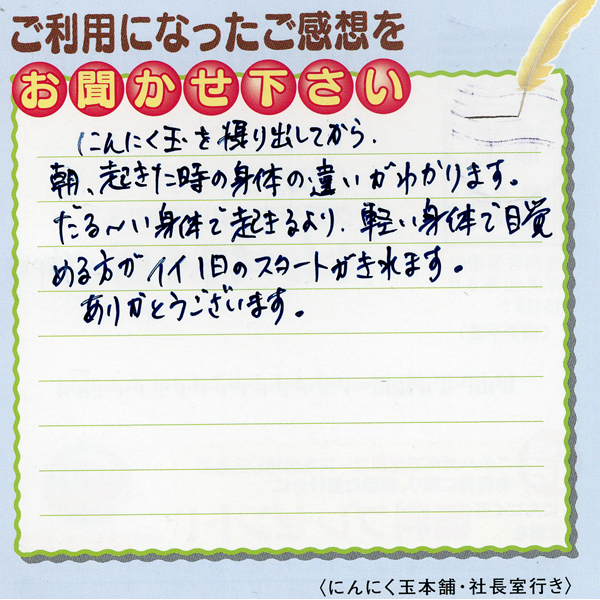 ご利用になったご感想を
お聞かせ下さい
にんにく玉を摂り出してから、
朝、起きた時の身体の違いがわかります。
だる〜い身体で起きるより、軽い身体で目覚
める方がイイ1日のスタートがきれます。
ありがとうございます。
〈にんにく玉本舗・社長室行き〉